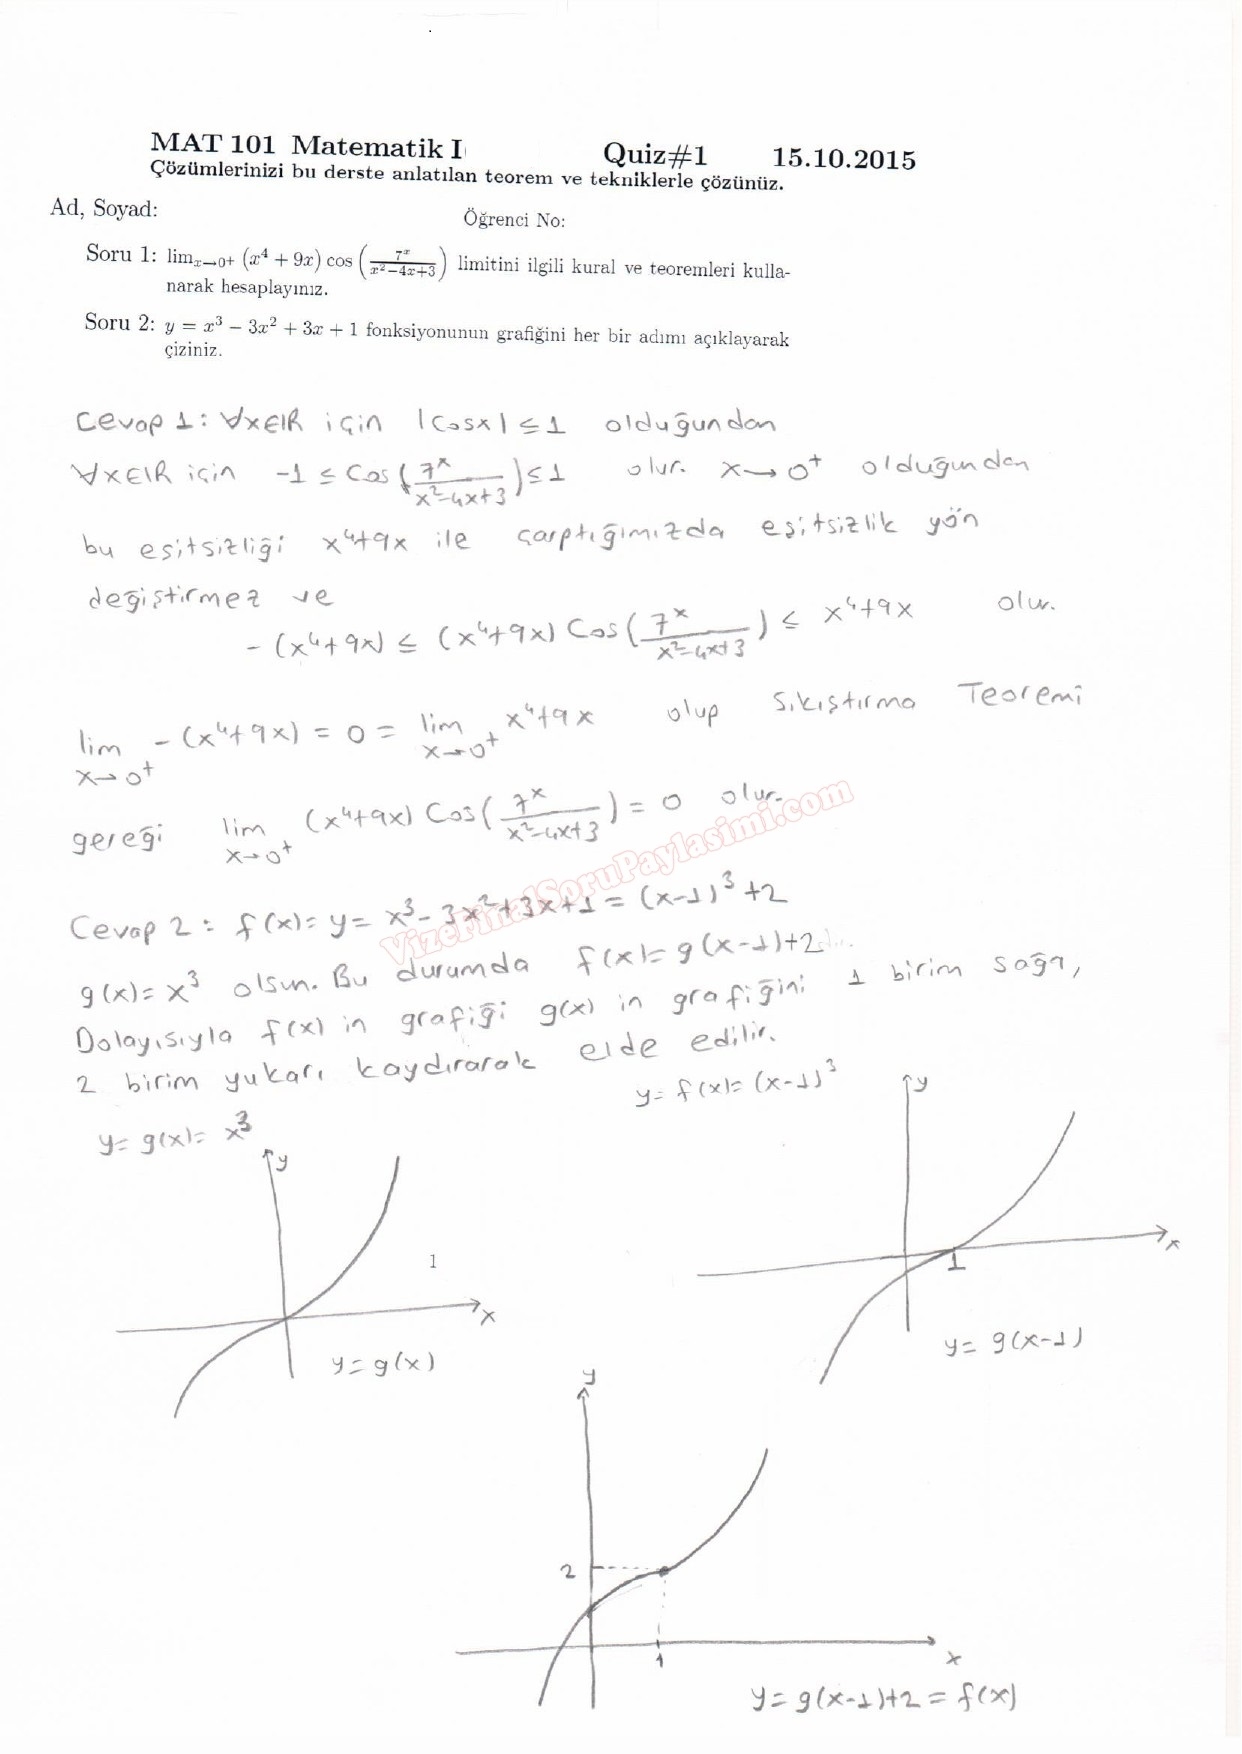 MAT 101 Matematik I Quiz#1 15.10.2015
Çözümlerinizi bu derste anlatılan teorem ve tekniklerle çözünüz.
Ad, Soyad: Öğrenci No:
Soru 1: lim_{x→0+} (x^4 + 9x) cos (7^x / (x^2−4x+3)) limitini ilgili kural ve teoremleri kulla-
narak hesaplayınız.
Soru 2: y = x^3 − 3x^2 + 3x + 1 fonksiyonunun grafiğini her bir adımı açıklayarak
çiziniz.
Cevap 1: ∀x∈IR için |Cosx| ≤ 1 olduğundan
∀x∈IR için -1 ≤ Cos(7^x / (x^2-4x+3)) ≤ 1 olur. x→0^+ olduğundan
bu eşitsizliği x^4+9x ile çarptığımızda eşitsizlik yön
değiştirmez ve
-(x^4+9x) ≤ (x^4+9x) Cos(7^x / (x^2-4x+3)) ≤ x^4+9x olur.
lim_{x→0^+} -(x^4+9x) = 0 = lim_{x→0^+} x^4+9x olup Sıkıştırma Teoremi
gereği lim_{x→0^+} (x^4+9x) Cos(7^x / (x^2-4x+3)) = 0 olur.
VizeFinalSoruPaylasimi.com
Cevap 2: f(x)= y= x^3-3x^2+3x+1 = (x-1)^3+2
g(x)= x^3 olsun. Bu durumda f(x)= g(x-1)+2
Dolayısıyla f(x) in grafiği g(x) in grafiğini 1 birim sağa,
2 birim yukarı kaydırarak elde edilir.
y= f(x)= (x-1)^3
y= g(x)= x^3
y
x
y= g(x)
1
y
x
1
y= g(x-1)
y
2
1
x
y= g(x-1)+2 = f(x)